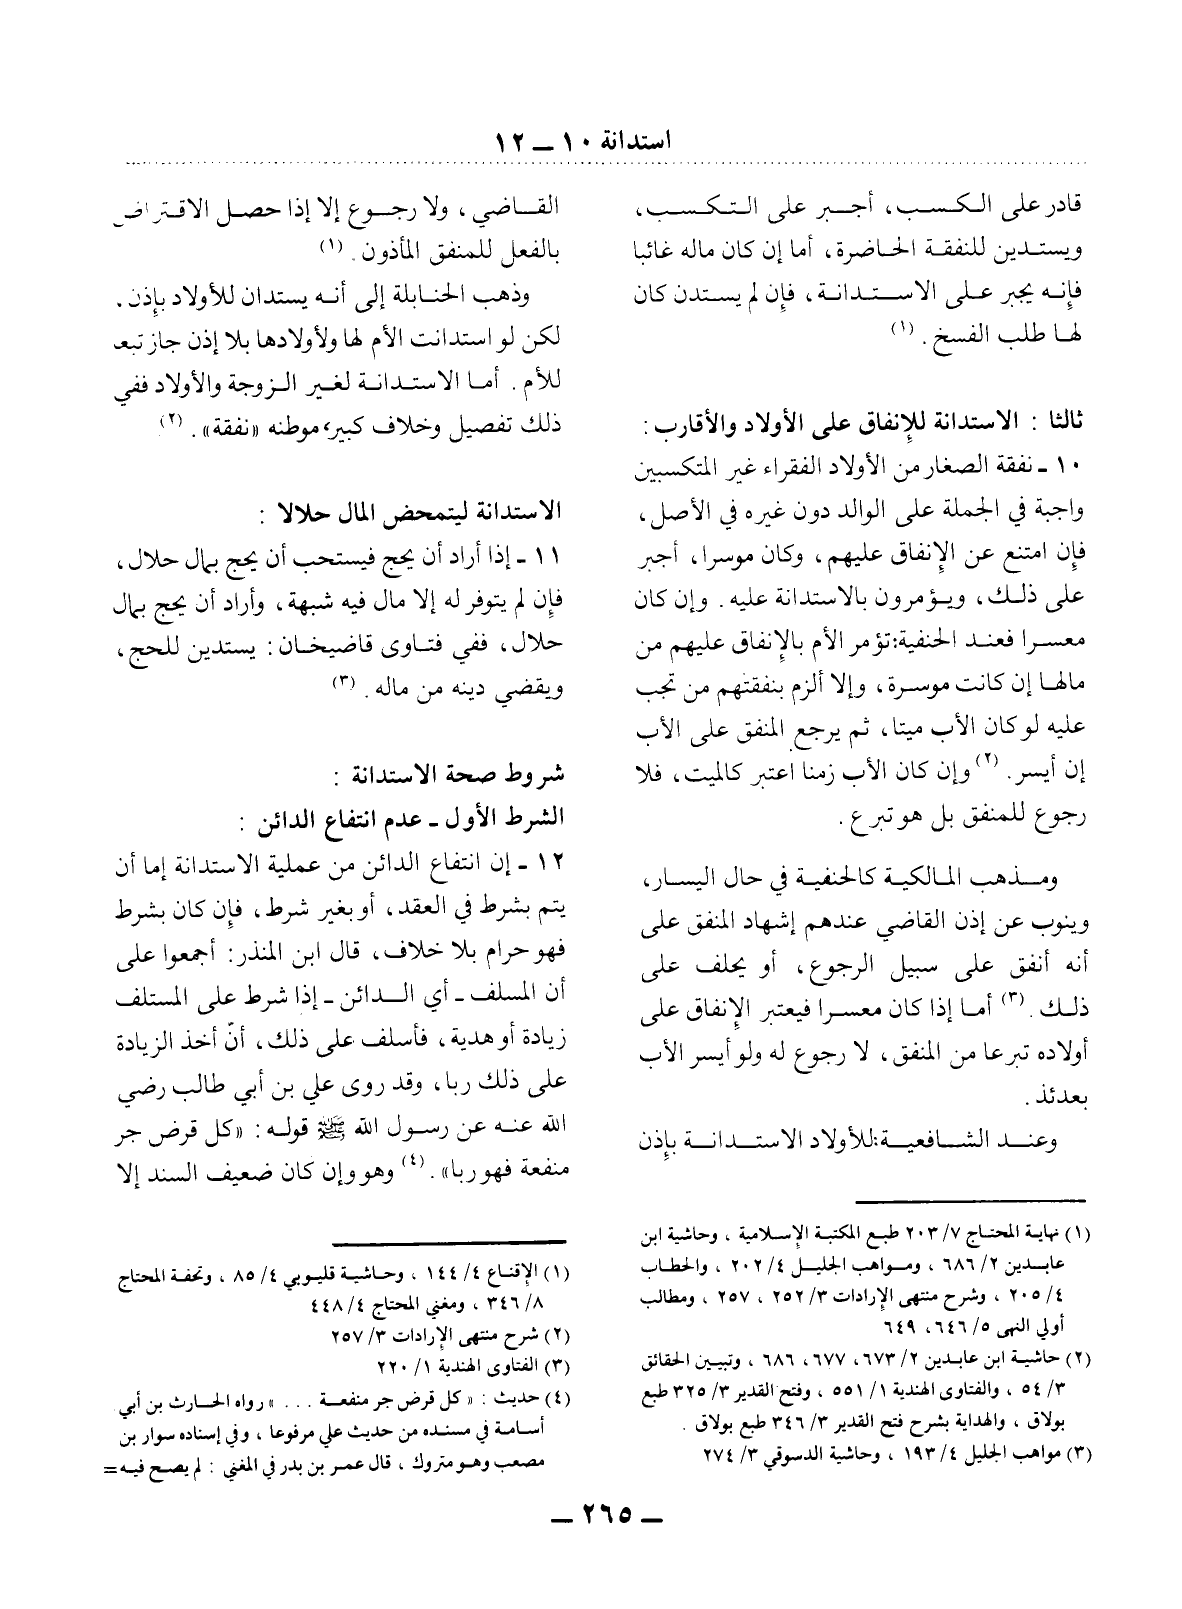 استدانة ١٠ ــ ١٢
قادر على الكسب، أجبر على التكسب،
ويستدين للنفقة الحاضرة، أما إن كان ماله غائبا
فإنه يجبر على الاستدانة، فإن لم يستدن كان
لها طلب الفسخ. (١)
ثالثا : الاستدانة للإنفاق على الأولاد والأقارب :
١٠ ـ نفقة الصغار من الأولاد الفقراء غير المتكسبين
واجبة في الجملة على الوالد دون غيره في الأصل،
فإن امتنع عن الإنفاق عليهم، وكان موسرا، أجبر
على ذلك، ويؤمرون بالاستدانة عليه. وإن كان
معسرا فعند الحنفية: تؤمر الأم بالإنفاق عليهم من
مالها إن كانت موسرة، وإلا ألزم بنفقتهم من تجب
عليه لو كان الأب ميتا، ثم يرجع المنفق على الأب
إن أيسر. (٢) وإن كان الأب زمنا اعتبر كالميت، فلا
رجوع للمنفق بل هو تبرع.
ومذهب المالكية كالحنفية في حال اليسار،
وينوب عن إذن القاضي عندهم إشهاد المنفق على
أنه أنفق على سبيل الرجوع، أو يحلف على
ذلك. (٣) أما إذا كان معسرا فيعتبر الإنفاق على
أولاده تبرعا من المنفق، لا رجوع له ولو أيسر الأب
بعدئذ.
وعند الشافعية: للأولاد الاستدانة بإذن
(١) نهاية المحتاج ٧/ ٢٠٣ طبع المكتبة الإسلامية ، وحاشية ابن
عابدين ٢/ ٦٨٦ ، ومواهب الجليل ٤/ ٢٠٢ ، والحطاب
٤/ ٢٠٥ ، وشرح منتهى الإرادات ٣/ ٢٥٢ ، ٢٥٧ ، ومطالب
أولي النهى ٥/ ٦٤٦، ٦٤٩
(٢) حاشية ابن عابدين ٢/ ٦٧٣، ٦٧٧، ٦٨٦ ، وتبيين الحقائق
٣/ ٥٤ ، والفتاوى الهندية ١/ ٥٥١ ، وفتح القدير ٣/ ٣٢٥ طبع
بولاق ، والهداية بشرح فتح القدير ٣/ ٣٤٦ طبع بولاق .
(٣) مواهب الجليل ٤/ ١٩٣ ، وحاشية الدسوقي ٣/ ٢٧٤
القاضي، ولا رجوع إلا إذا حصل الاقتراض
بالفعل للمنفق المأذون. (١)
وذهب الحنابلة إلى أنه يستدان للأولاد بإذن.
لكن لو استدانت الأم لها ولأولادها بلا إذن جاز تبعا
للأم. أما الاستدانة لغير الزوجة والأولاد ففي
ذلك تفصيل وخلاف كبير، موطنه «نفقة». (٢)
الاستدانة ليتمحض المال حلالا :
١١ ـ إذا أراد أن يحج فيستحب أن يحج بمال حلال،
فإن لم يتوفر له إلا مال فيه شبهة، وأراد أن يحج بمال
حلال، ففي فتاوى قاضيخان: يستدين للحج،
ويقضي دينه من ماله. (٣)
شروط صحة الاستدانة :
الشرط الأول ـ عدم انتفاع الدائن :
١٢ ـ إن انتفاع الدائن من عملية الاستدانة إما أن
يتم بشرط في العقد، أو بغير شرط، فإن كان بشرط
فهو حرام بلا خلاف، قال ابن المنذر: أجمعوا على
أن المسلف ـ أي الدائن ـ إذا شرط على المستلف
زيادة أو هدية، فأسلف على ذلك، أنّ أخذ الزيادة
على ذلك ربا، وقد روى علي بن أبي طالب رضي
الله عنه عن رسول الله ﷺ قوله: «كل قرض جر
منفعة فهو ربا». (٤) وهو وإن كان ضعيف السند إلا
(١) الإقناع ٤/ ١٤٤ ، وحاشية قليوبي ٤/ ٨٥ ، وتحفة المحتاج
٨/ ٣٤٦ ، ومغني المحتاج ٤/ ٤٤٨
(٢) شرح منتهى الإرادات ٣/ ٢٥٧
(٣) الفتاوى الهندية ١/ ٢٢٠
(٤) حديث : «كل قرض جر منفعة . . . » رواه الحارث بن أبي
أسامة في مسنده من حديث علي مرفوعا ، وفي إسناده سوار بن
مصعب وهو متروك ، قال عمر بن بدر في المغني : لم يصح فيه=
ــ ٢٦٥ ــ